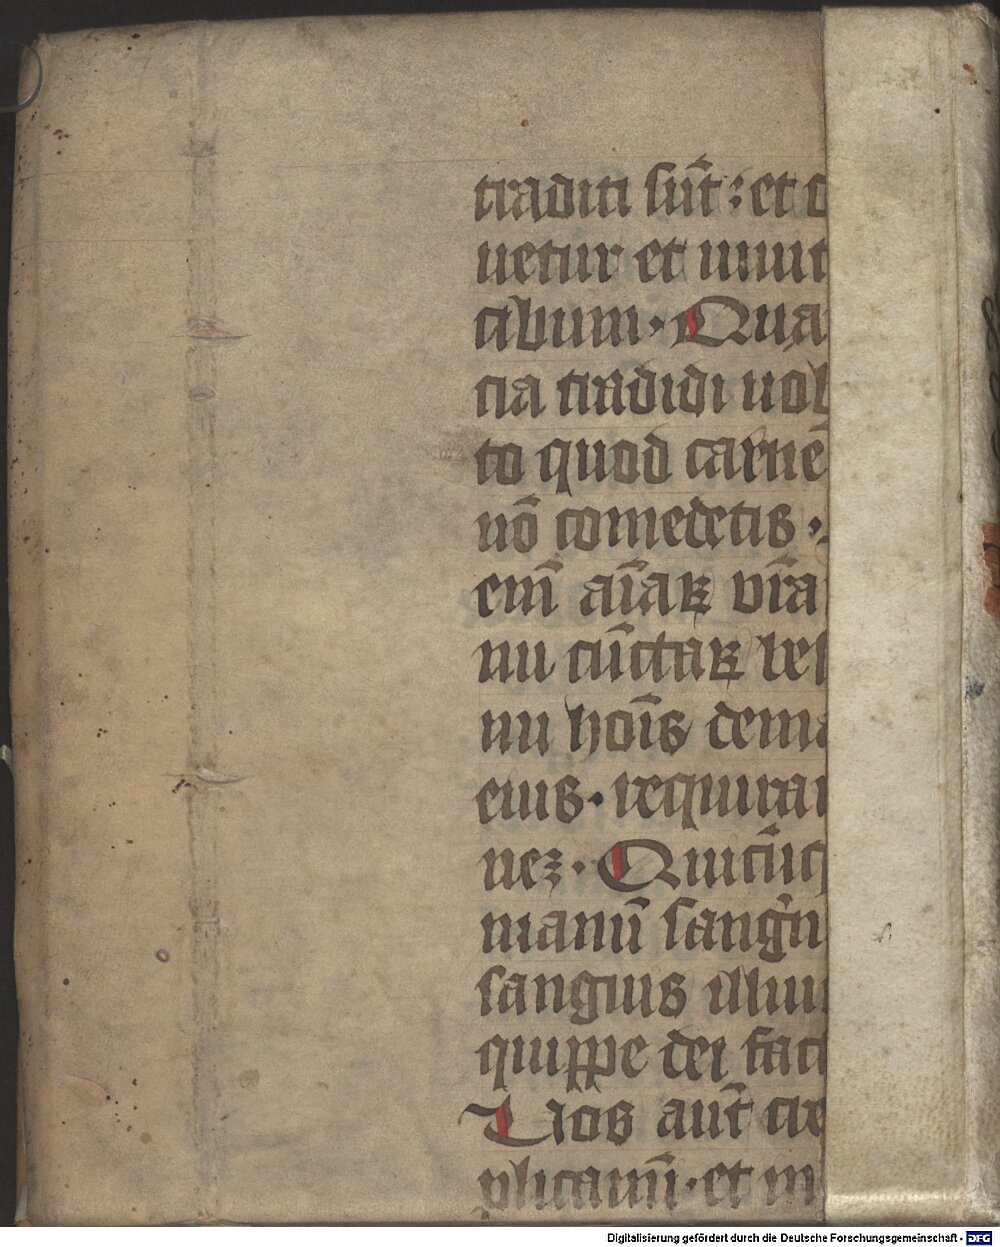 traditi sūt : et o
uetur et uiuit
cibum · Qua
tia tradidi uob
to quod carnē
nō comedetis ·
enī aīaꝝ vr̄a
nu cūctaꝝ bes
nu hoīs de ma
eius · requiram
nez · Quicūq
manū sangn
sanguis illiu
quippe dei fact
Uos aūt cre
plicamī · et in
Digitalisierung gefördert durch die Deutsche Forschungsgemeinschaft - DFG